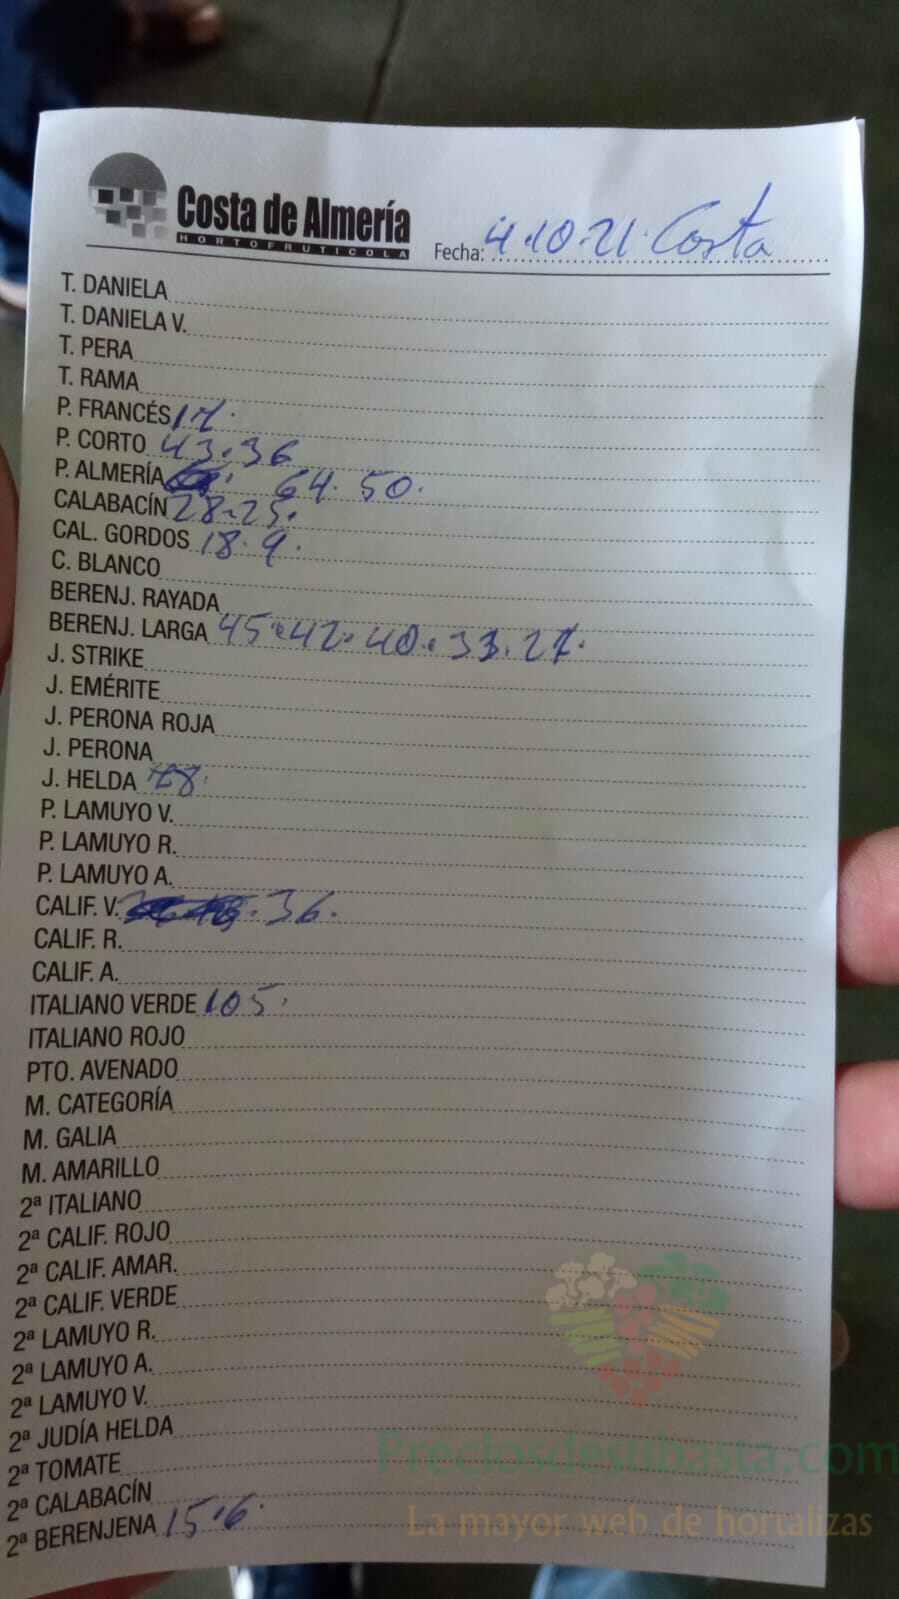 Costa de Almería
HORTOFRUTICOLA
Fecha: 4.10.21. Costa
T. DANIELA
T. DANIELA V.
T. PERA
T. RAMA
P. FRANCÉS 17.
P. CORTO 43.36
P. ALMERÍA 64. 50.
CALABACÍN 28.25.
CAL. GORDOS 18.9.
C. BLANCO
BERENJ. RAYADA
BERENJ. LARGA 45.42.40.33.27.
J. STRIKE
J. EMÉRITE
J. PERONA ROJA
J. PERONA
J. HELDA
P. LAMUYO V.
P. LAMUYO R.
P. LAMUYO A.
CALIF. V. 36.
CALIF. R.
CALIF. A.
ITALIANO VERDE 105.
ITALIANO ROJO
PTO. AVENADO
M. CATEGORÍA
M. GALIA
M. AMARILLO
2ª ITALIANO
2ª CALIF. ROJO
2ª CALIF. AMAR.
2ª CALIF. VERDE
2ª LAMUYO R.
2ª LAMUYO A.
2ª LAMUYO V.
2ª JUDÍA HELDA
2ª TOMATE
2ª CALABACÍN
2ª BERENJENA 15.6.
Preciosdesubasta.com
La mayor web de hortalizas